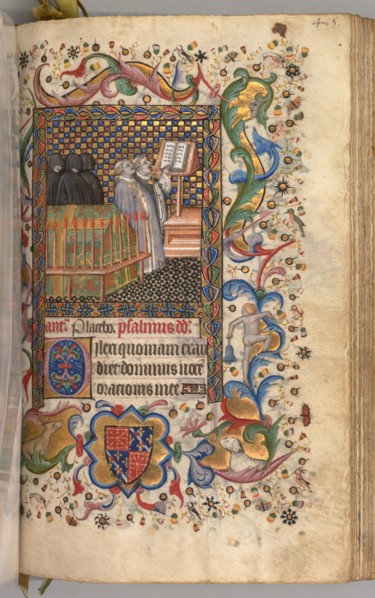 ant̃. Placebo. psalmus dd̃.
Dilexi quoniam exau
diet dominus uocē
orationis mee